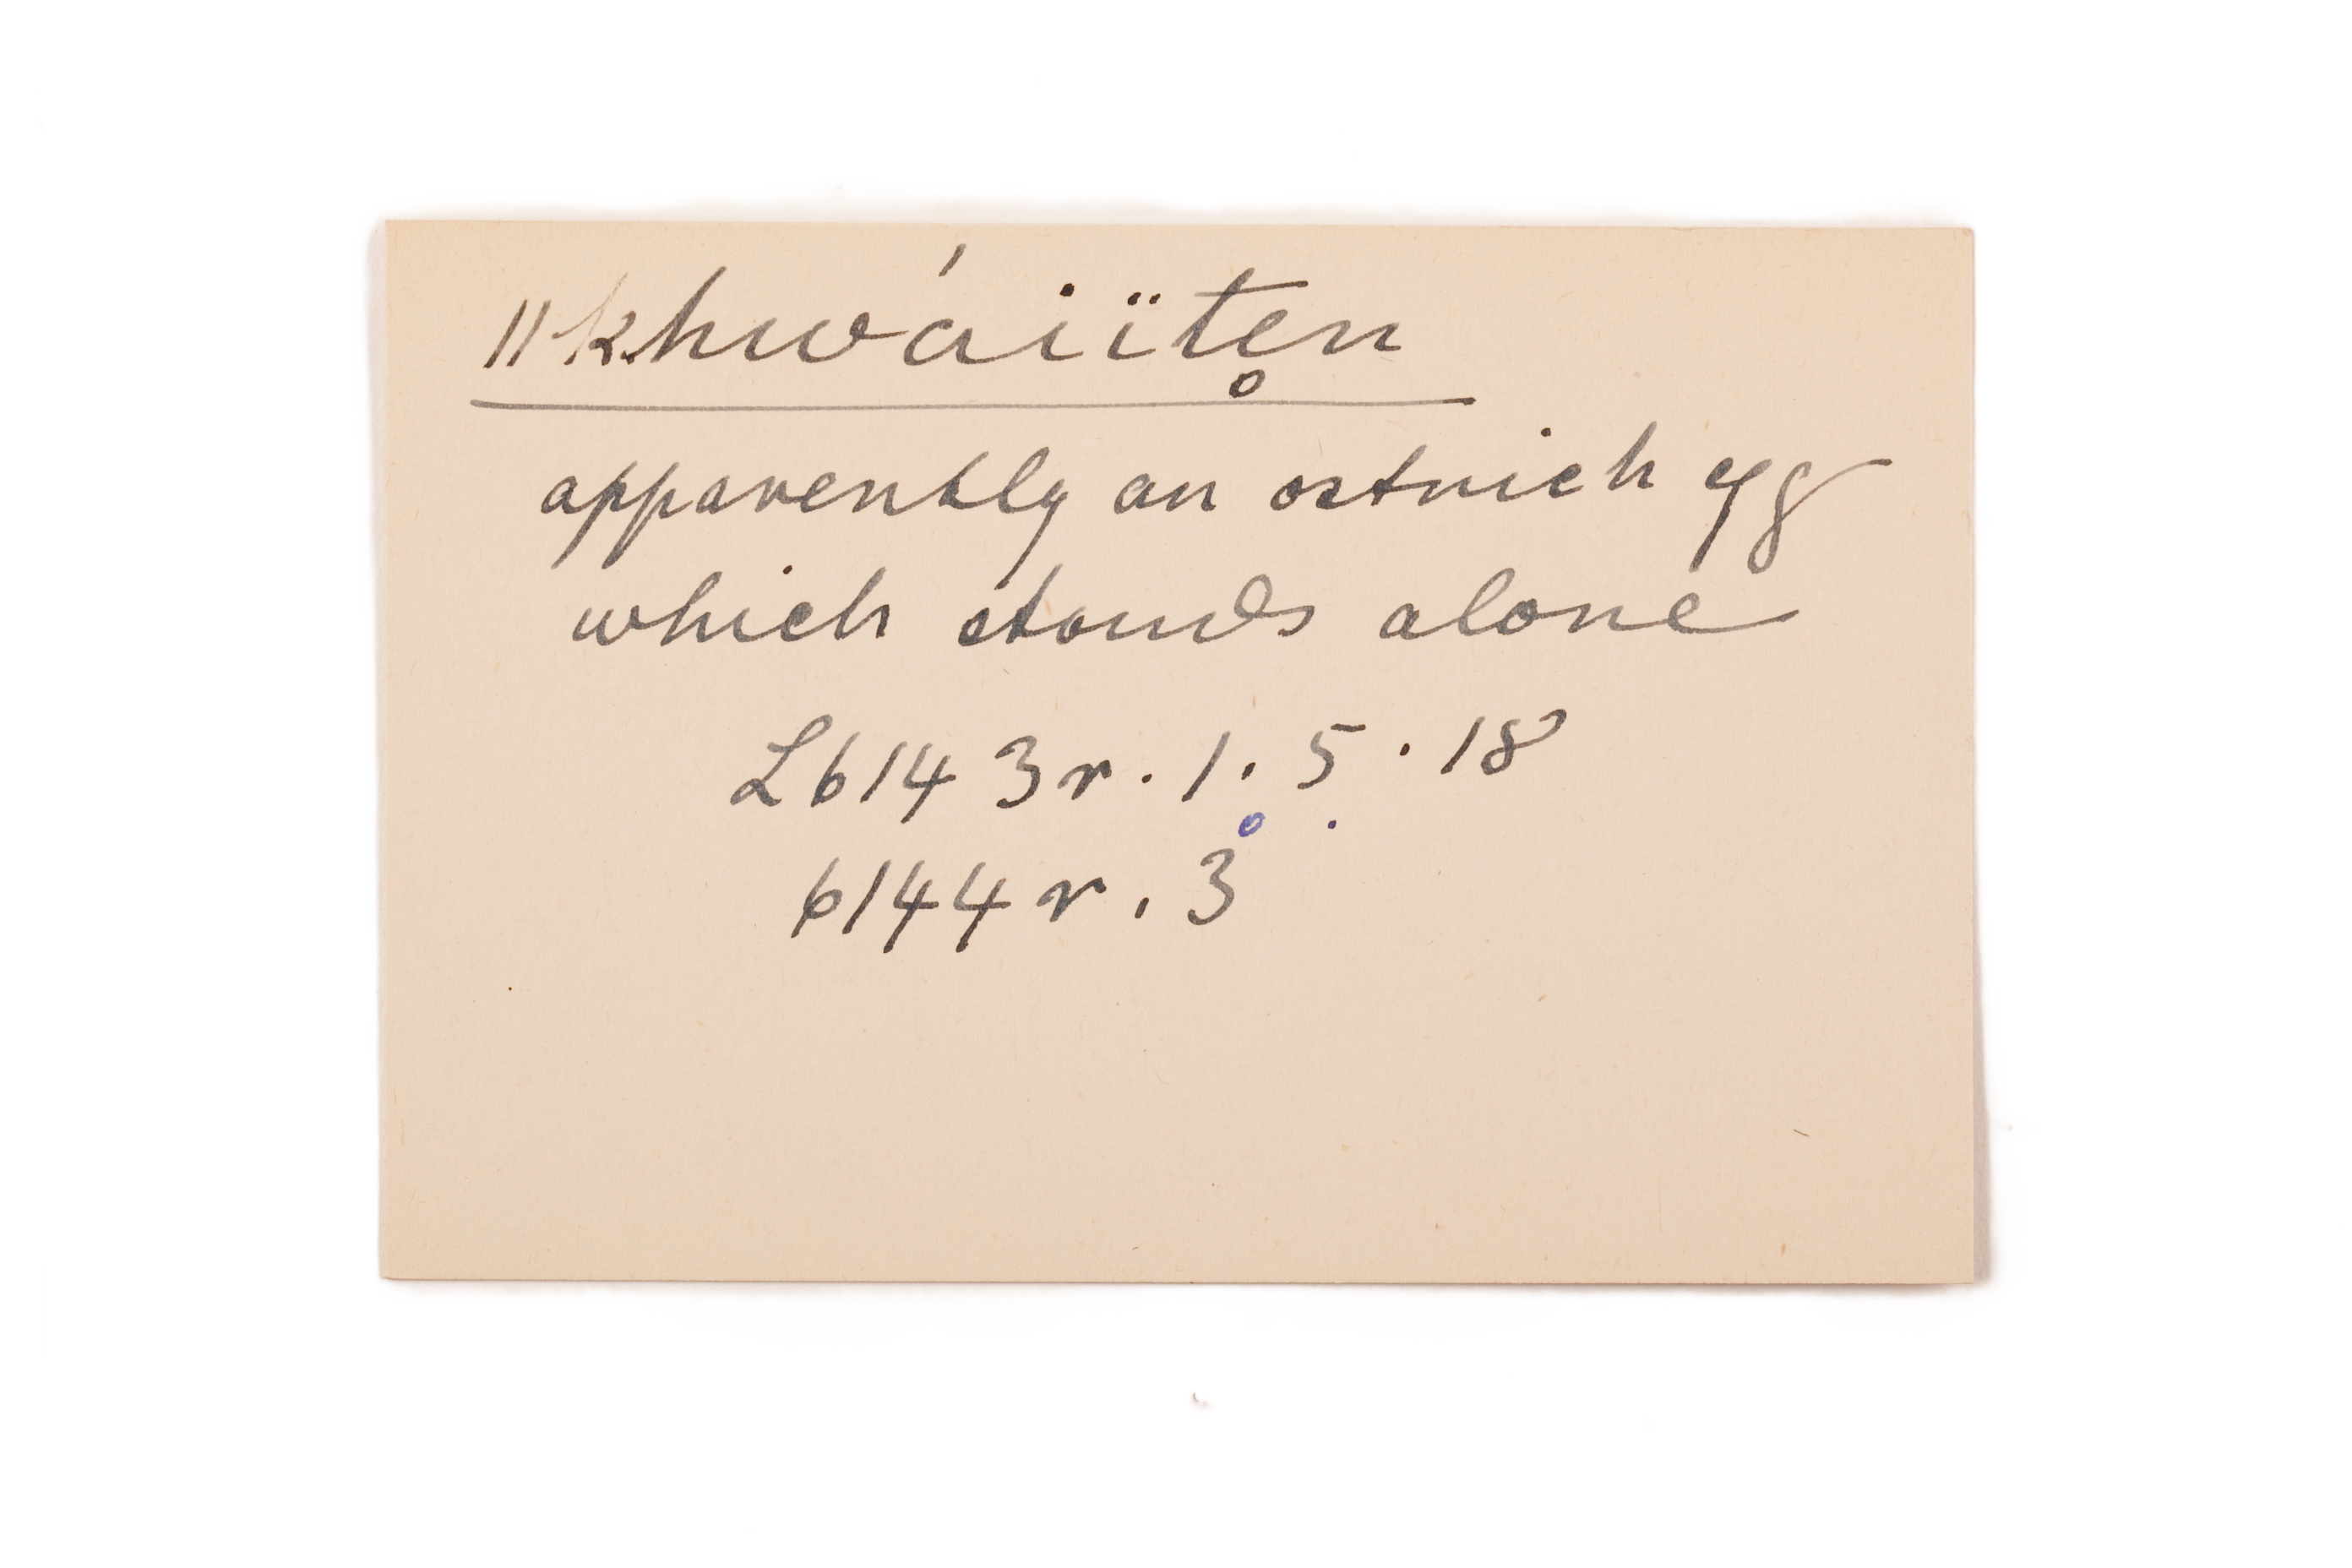 ǁkhwáiïte̥n
apparently an ostrich egg
which stands alone
L6143r.1.5.18
6144r.3